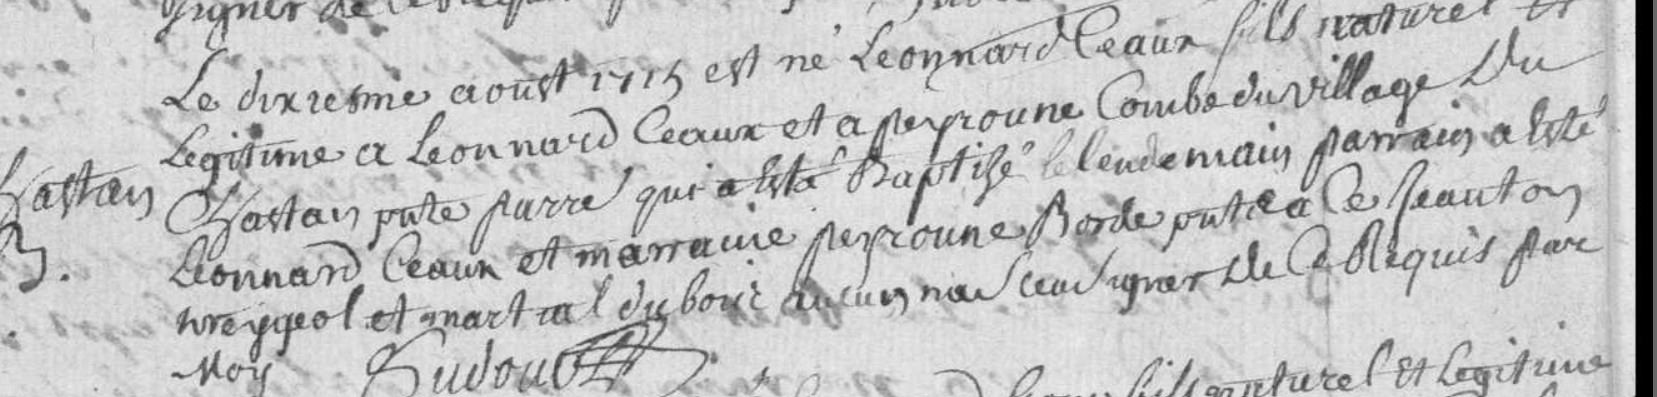 signer de ce requis
Le dixiesme aoust 1715 est né Leonnard Ceaux fils naturel et
Legitime a Leonnard Ceaux et a peyroune Combe du village Du
Chastan
Chastan pnte parre qui a esté Baptisé le lendemain parrain a esté
B.
Leonnard Ceaux et marraine peyroune Borde pnt a Ce Jeanton
treygeol et martial du bois aucun na sceu signer de Ce Requis par
Moy Sudour
fils naturel Et Legitime